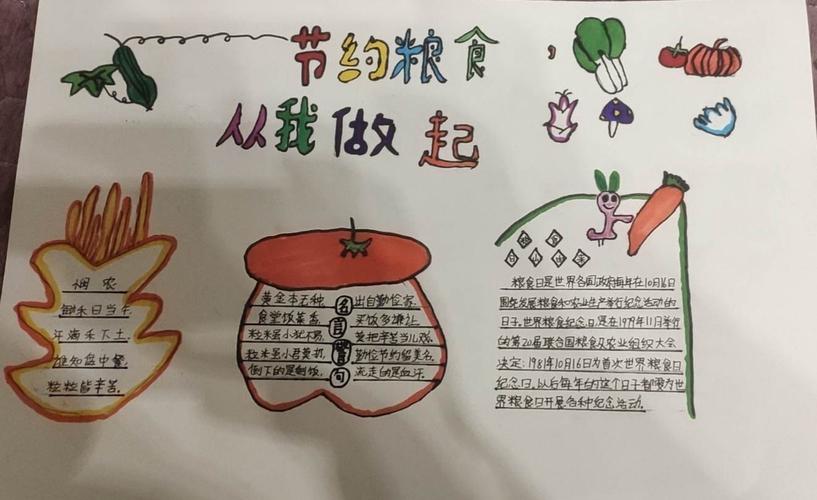 节约粮食，
从我做起
悯农
锄禾日当午
汗滴禾下土
谁知盘中餐
粒粒皆辛苦.
名言警句
黄金本无种 出自勤俭家
食堂饭菜香 买饭多谦让
粒米虽小犹不易 莫把辛苦当儿戏
粒米虽小君莫扔 勤俭节约留美名
倒下的是剩饭 流走的是血汗.
粮食
日 由来
粮食日是世界各国政府每年在10月16日
围绕发展粮食和农业生产举行纪念活动的
日子.世界粮食纪念日,是在1979年11月举行
的第20届联合国粮食及农业组织大会
决定:1981年10月16日为首次世界粮食日
纪念日,以后每年的这个日子都要为世
界粮食日开展各种纪念活动.